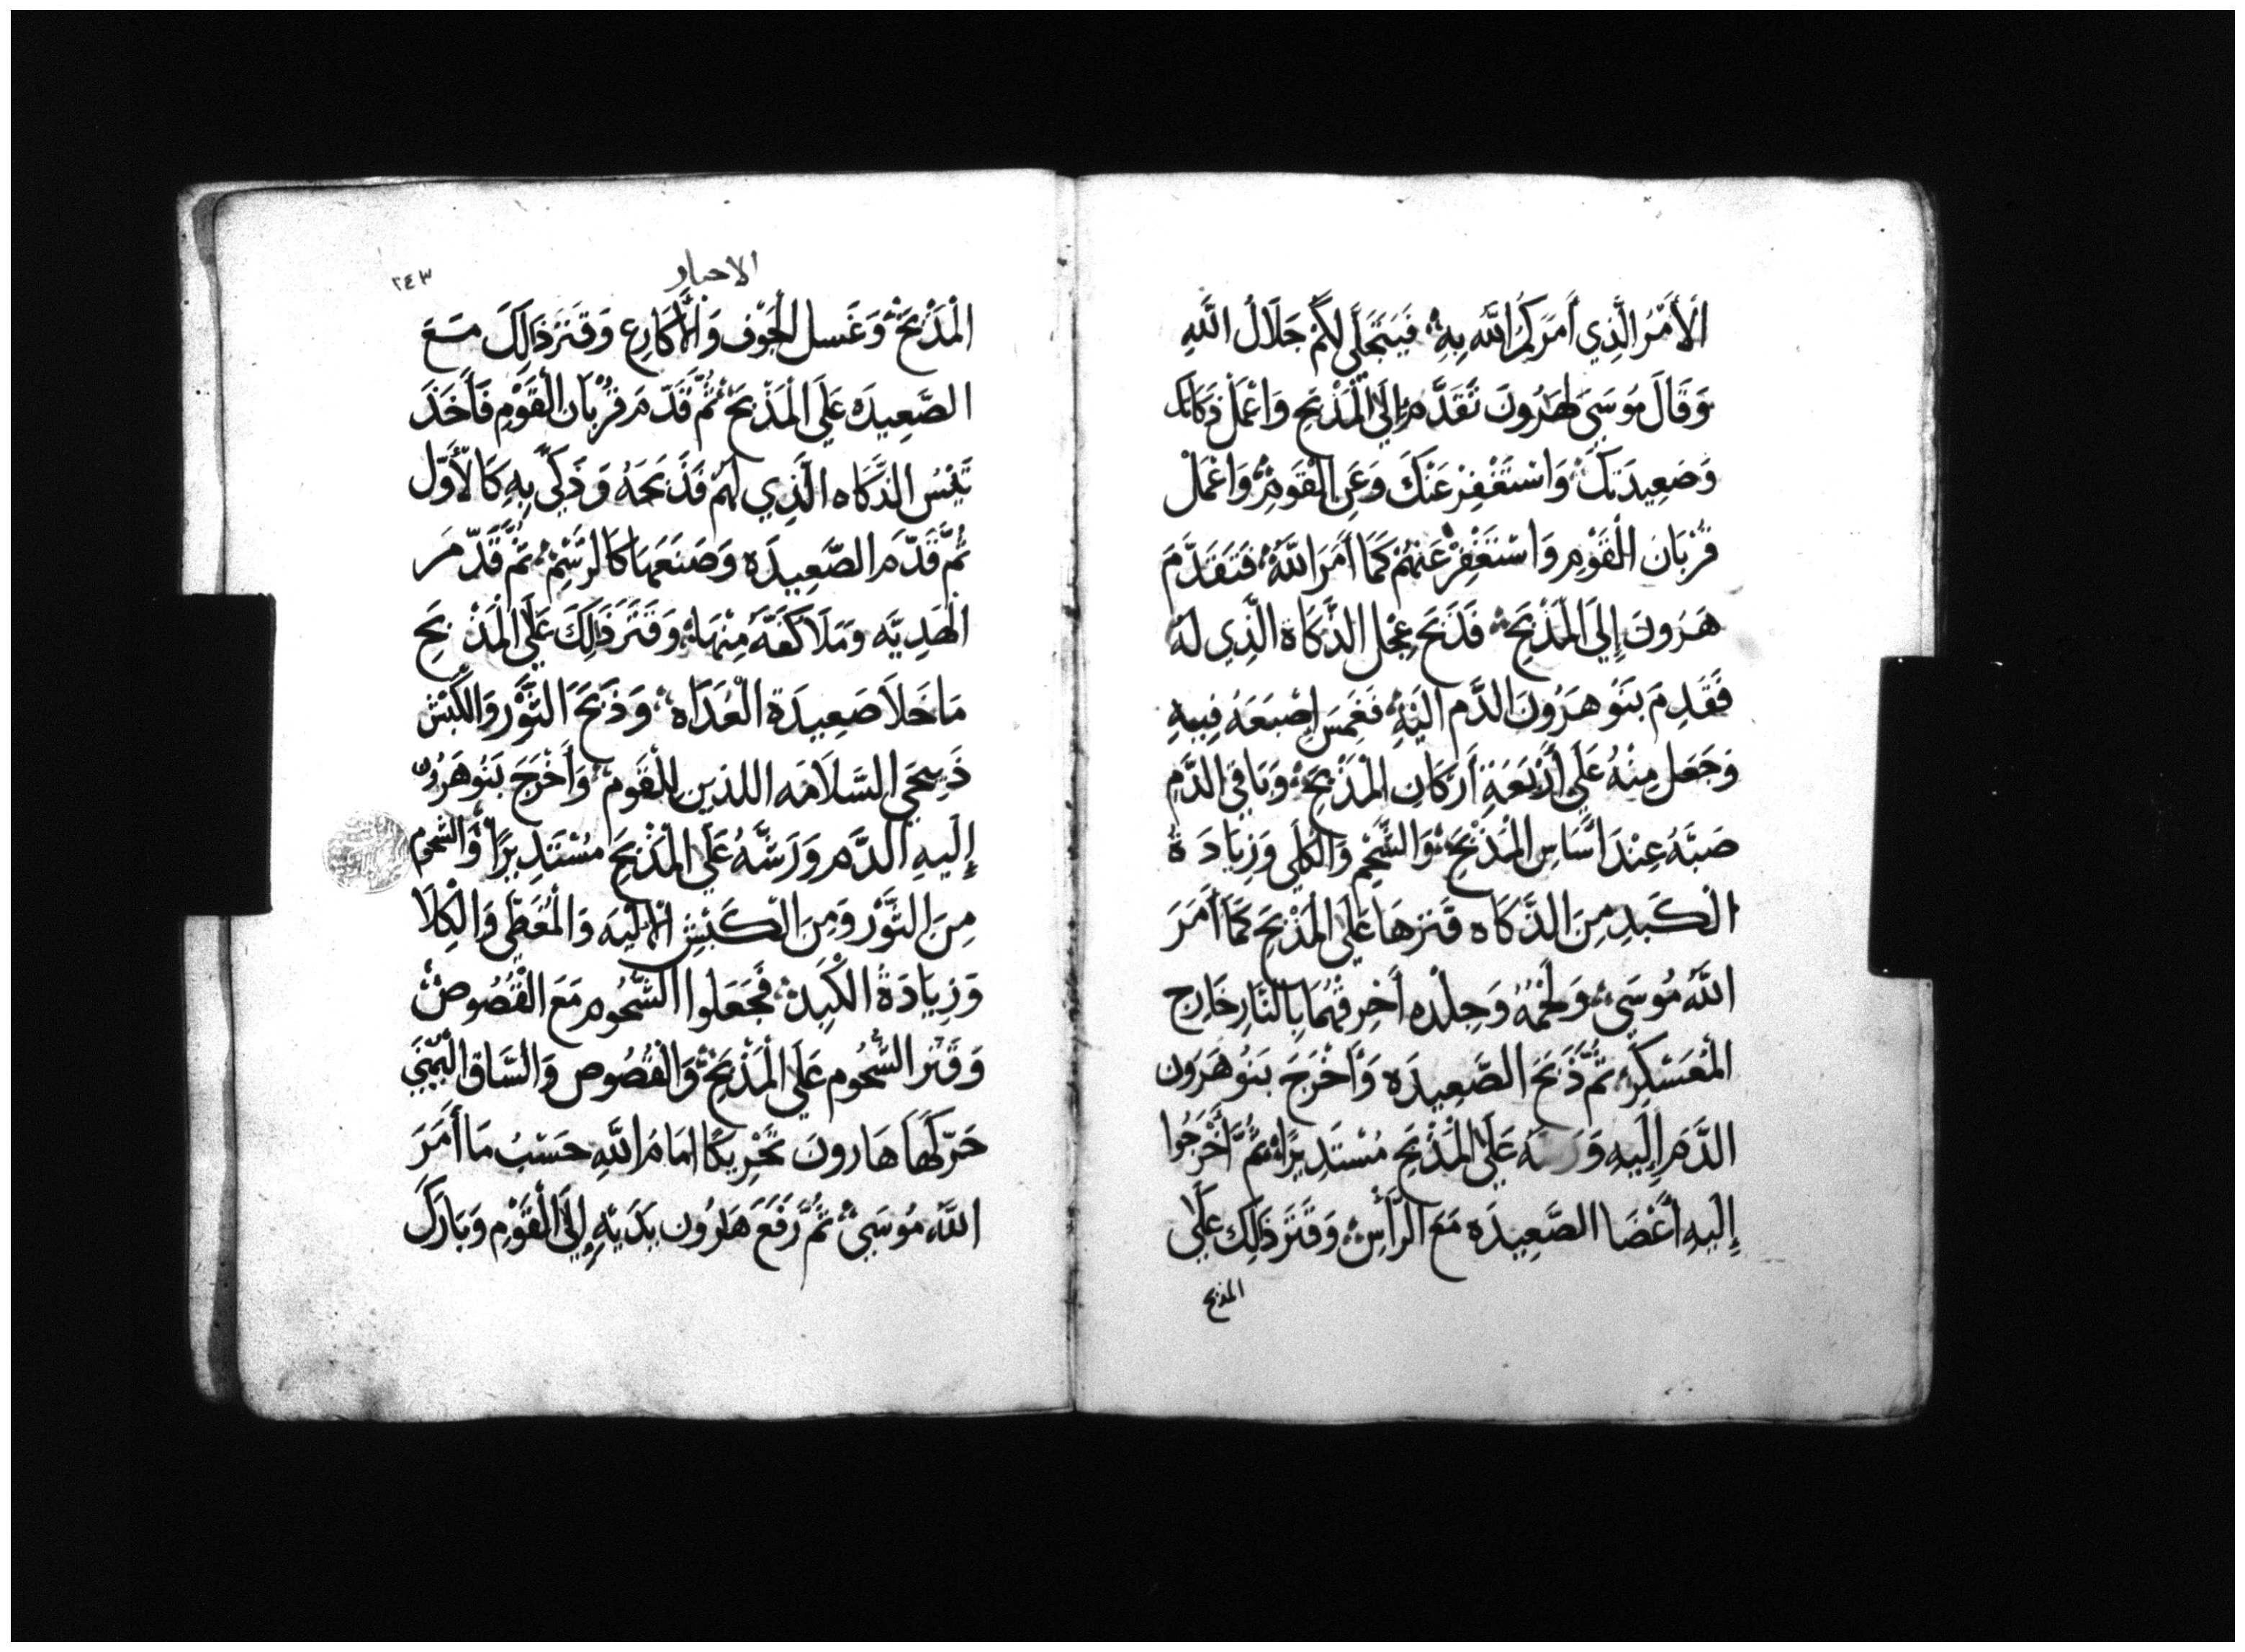 الْأَمْرُ الَّذِي أَمَرَكُمُ اللَّه بِهِ فَيَتَجَلَّى لَكُمْ جَلَالُ اللَّهِ
وَقَالَ مُوسَى لِهَرُونَ تَقَدَّمْ إِلَى الْمَذْبَحِ وَاعْمَلْ ذَكَاتَكَ
وَصَعِيدَتَكَ وَاسْتَغْفِرْ عَنْكَ وَعَنِ الْقَوْمِ وَاعْمَلْ
قُرْبَانَ الْقَوْمِ وَاسْتَغْفِرْ عَنْهُمْ كَمَا أَمَرَ اللَّهُ فَتَقَدَّمَ
هَرُونَ إِلَى الْمَذْبَحِ فَذَبَحَ عِجْلَ الذَّكَاةِ الَّذِي لَهُ
فَقَدِمَ بَنُو هَرُونَ الدَّم الَيْهِ فَغَمَسَ إِصْبَعَهُ فِيهِ
وَجَعَلَ مِنْهُ عَلَى أَرْبَعَةِ أَرْكَانِ الْمَذْبَحِ وَبَاقِي الدَّمِ
صَبَّهُ عِنْدَ اسَاسِ الْمَذْبَحِ وَالشَّحْمِ وَالْكُلَى وَزِيَادَةُ
الْكَبَدِ مِنَ الذَّكَاه قَتَرهَا عَلَى الْمَذْبَحِ كَمَا أَمَرَ
اللَّهُ مُوسَى وَلَحْمُهُ وَجِلْدُه أَحْرِقْهُمَا بِالنَّارِ خَارِج
الْمُعَسْكَرِ ثُمَّ ذَبَحَ الصَّعِيدَه وَأَخْرَجَ بَنُو هَرُون
الدَّمَ إِلَيهِ عَلَى الْمَذْبَحِ مُسْتَدِيرًا ثُمَّ أَخْرَجُوا
إِلَيهِ أَعْضَا الصَّعِيدَه مَعَ الرَّأْسِ وَقَتَرَ ذَلِكَ عَلَى
المذبح
الاحبار
٢٤٣
الْمَذْبَحِ وَغَسل الْجَوْف وَالْأَكَارِع وَقَتَرَ ذَالِكَ مَعَ
الصَّعِيدَه عَلَى الْمَذْبَحِ ثُمَّ قَدَّمَ قُرْبَانَ الْقَوْمِ فَأَخَذَ
تَيْسُ الذَّكَاه الَّذِي لَهُم فَذَبَحَهُ وَذَكَّى بِهِ كَالْأَوَّل
ثُمَّ قَدَّمَ الصَّعِيدَه وَصَنَعَهَا كَالرَّسْمِ ثُمَّ قَدَّمَ
الْهَدِيَّه وَمَلَا كَفَّهُ مِنْهَا وَقَتَرَ ذَلِكَ عَلَى الْمَذْبَحِ
مَا خَلَا صَعِيدَة الْغَدَاه وَذَبَحَ الثَّوْرَ وَالْكَبْشَ
ذَبِيحَي السَّلَامَه اللذين لِلْقَوم وَأَخْرَجَ بَنُو هَرُون
إِلَيهِ الدَّم وَرَشَّهُ عَلَى الْمَذْبَحِ مُسْتَدِيرًا وَالشحُوم
مِنَ الثَّوْر وَمِنَ الْكَبْشِ الْأَلْيَه وَالْمُغَطِّي وَالْكِلَا
وَزِيَادَةُ الْكَبِد فَجَعَلُوا الشَّحُوم مَعَ الْقُصُوص
وَقَتر الشُّحُوم عَلَى الْمَذْبَحِ وَالْقُصُوص وَالسَّاق الْيُمْنَى
حَرّكَهَا هَارون تَحْرِيكًا امَامُ اللَّهِ حَسْبُ مَا أَمَرَ
اللَّه مُوسَى ثُمَّ رَفَعَ هَرُون يَدَيْهِ إِلَى الْقَوْمِ وَبَارَكَ